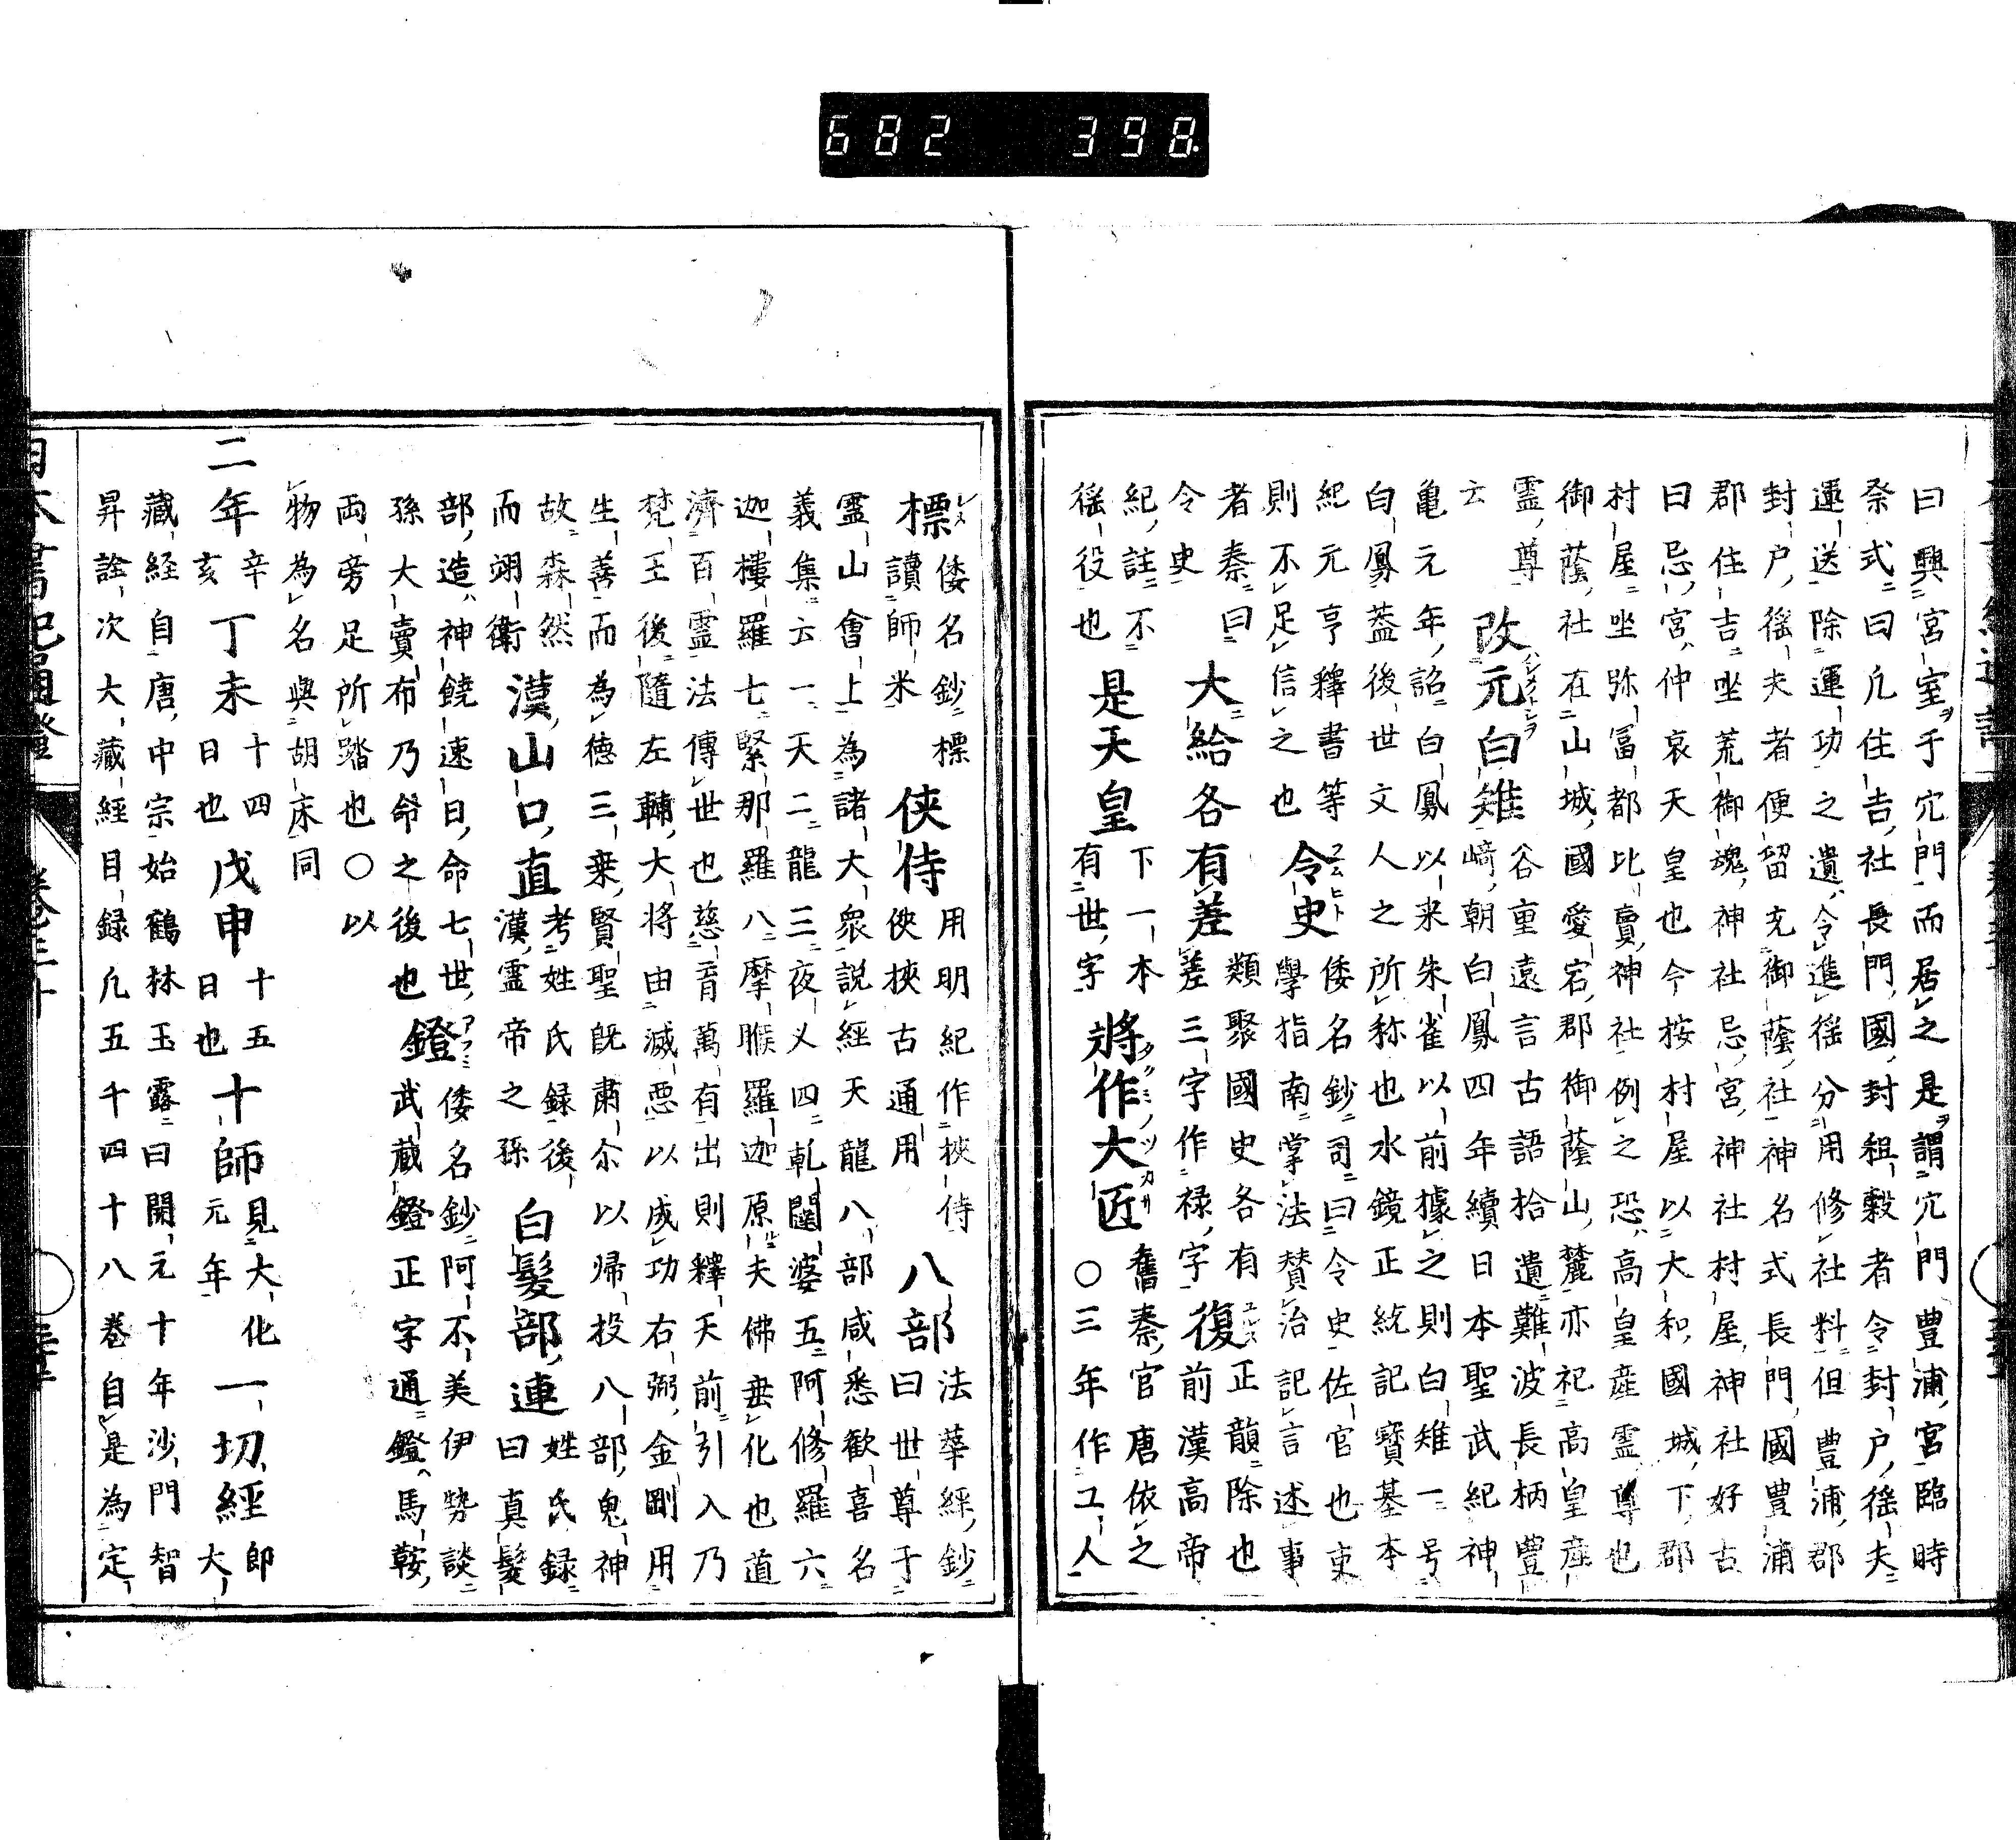 682 398
曰興宮室于宂門而居之是謂宂門豊浦宮臨時
祭式曰凢住吉社長門國封租穀者令封戸徭夫
運送除運功之遺令進徭分用修社料但豊浦郡
封戸徭夫者便留充御蔭社神名式長門國豊浦
郡住吉坐荒御魂神社忌宮神社村屋神社好古
曰忌宮仲哀天皇也今按村屋以大和國城下郡
村屋坐弥冨都比賣神社例之恐高皇産霊尊也
御蔭社在山城國愛宕郡御蔭山麓亦祀高皇産
霊尊 改元白雉 谷重遠言古語拾遺難波長柄豊
云 﨑朝白鳳四年續日本聖武紀神
亀元年詔白鳳以来朱雀以前據之則白雉一号
白鳳葢後世文人之所称也水鏡正統記寳基本
紀元亨釋書等 令史 倭名鈔司曰令史佐官也吏
則不足信之也 學指南掌法賛治記言述事
者秦曰 大給各有差 類聚國史各有 復 正韻除也
令史 差三字作禄字 前漢高帝
紀註不 是天皇 下一本 將作大匠 舊秦官唐依之
徭役也 有世字 〇三年作工人
標 倭名鈔標 侠侍 用明紀作挾侍 八部 法華經鈔
讀師米 侠挾古通用 曰世尊于
霊山會上為諸大衆説經天龍八部咸悉歓喜名
義集云一天二龍三夜乂四乹闥婆五阿修羅六
迦樓羅七緊那羅八摩睺羅迦原夫佛垂化也道
濟百霊法傳世也慈育萬有出則釋天前引入乃
梵王後隨左輔大将由滅惡以成功右弼金剛用
生善而為徳三乗賢聖既肅尓以帰投八部鬼神
故森然 漢山口直 考姓氏録後 白髪部連 姓氏録
而翊衛 漢霊帝之孫 曰真髪
部造神饒速日命七世 鐙 倭名鈔阿不美伊勢談
孫大賣布乃命之後也 武蔵鐙正字通鐙馬鞍
両旁足所踏也〇以
物為名與胡床同
二年 辛亥 丁未 十四日也 戊申 十五日也 十師 見大化元年 一切經 即大
藏經自唐中宗始鶴林玉露曰開元十年沙門智
昇詮次大藏經目録凢五千四十八巻自是為定